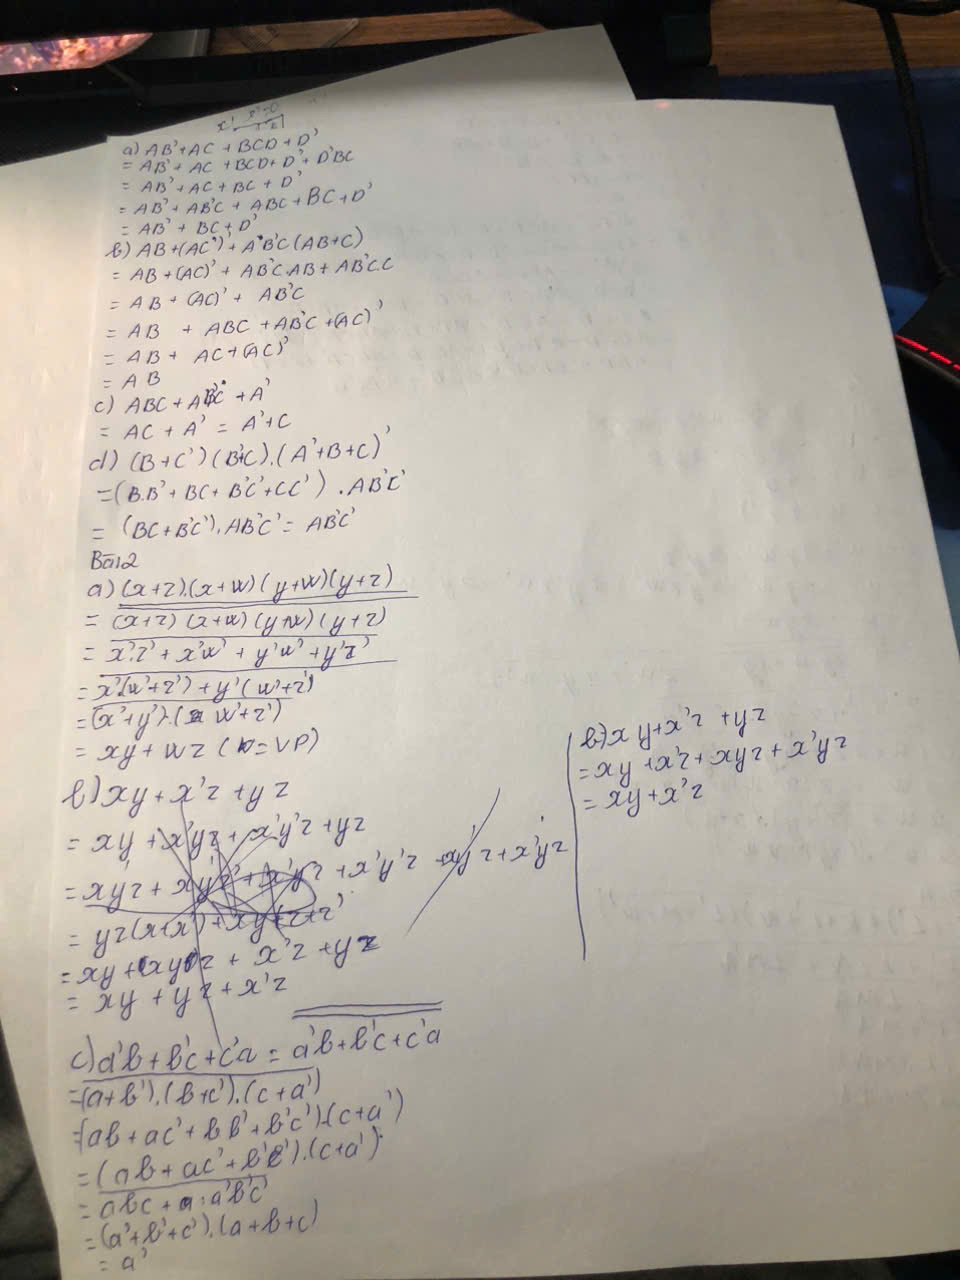 a) AB'+AC + BCD + D'
= AB' + AC + BCD + D' + D'BC
= AB' + AC + BC + D'
= AB' + AB'C + ABC + BC + D'
= AB' + BC + D'
b) AB+(AC)' + AB'C (AB+C)
= AB + (AC)' + AB'C.AB + AB'C.C
= AB + (AC)' + AB'C
= AB + ABC + AB'C + (AC)'
= AB + AC + (AC)'
= AB
c) ABC + AB'C + A'
= AC + A' = A'+C
d) (B+C')(B'+C).(A'+B+C)'
= (B.B' + BC + B'C' + CC').AB'C'
= (BC+B'C').AB'C' = AB'C'
Bài 2
a) (x+z).(x+w)(y+w)(y+z)
= (x+z)(x+w)(y+w)(y+z)
= x'z' + x'w' + y'w' + y'z'
= x'(w'+z') + y'(w'+z')
= (x'+y').( w'+z')
= xy + wz ( = VP)
b) xy + x'z + yz
= xy + x'yz + x'y'z + yz
= yz(x+x') + xy(z+z'
= xy + xyz + x'z + yz
= xy + yz + x'z
b) xy+x'z + yz
= xy + x'z + xyz + x'yz
= xy + x'z
c) a'b + b'c + c'a = a'b + b'c + c'a
= (a+b').(b+c').(c+a')
= (ab + ac' + bb' + b'c').(c+a')
= (ab + ac' + b'c').(c+a')
= abc + a'b'c'
= (a'+b'+c').(a+b+c)
= a'